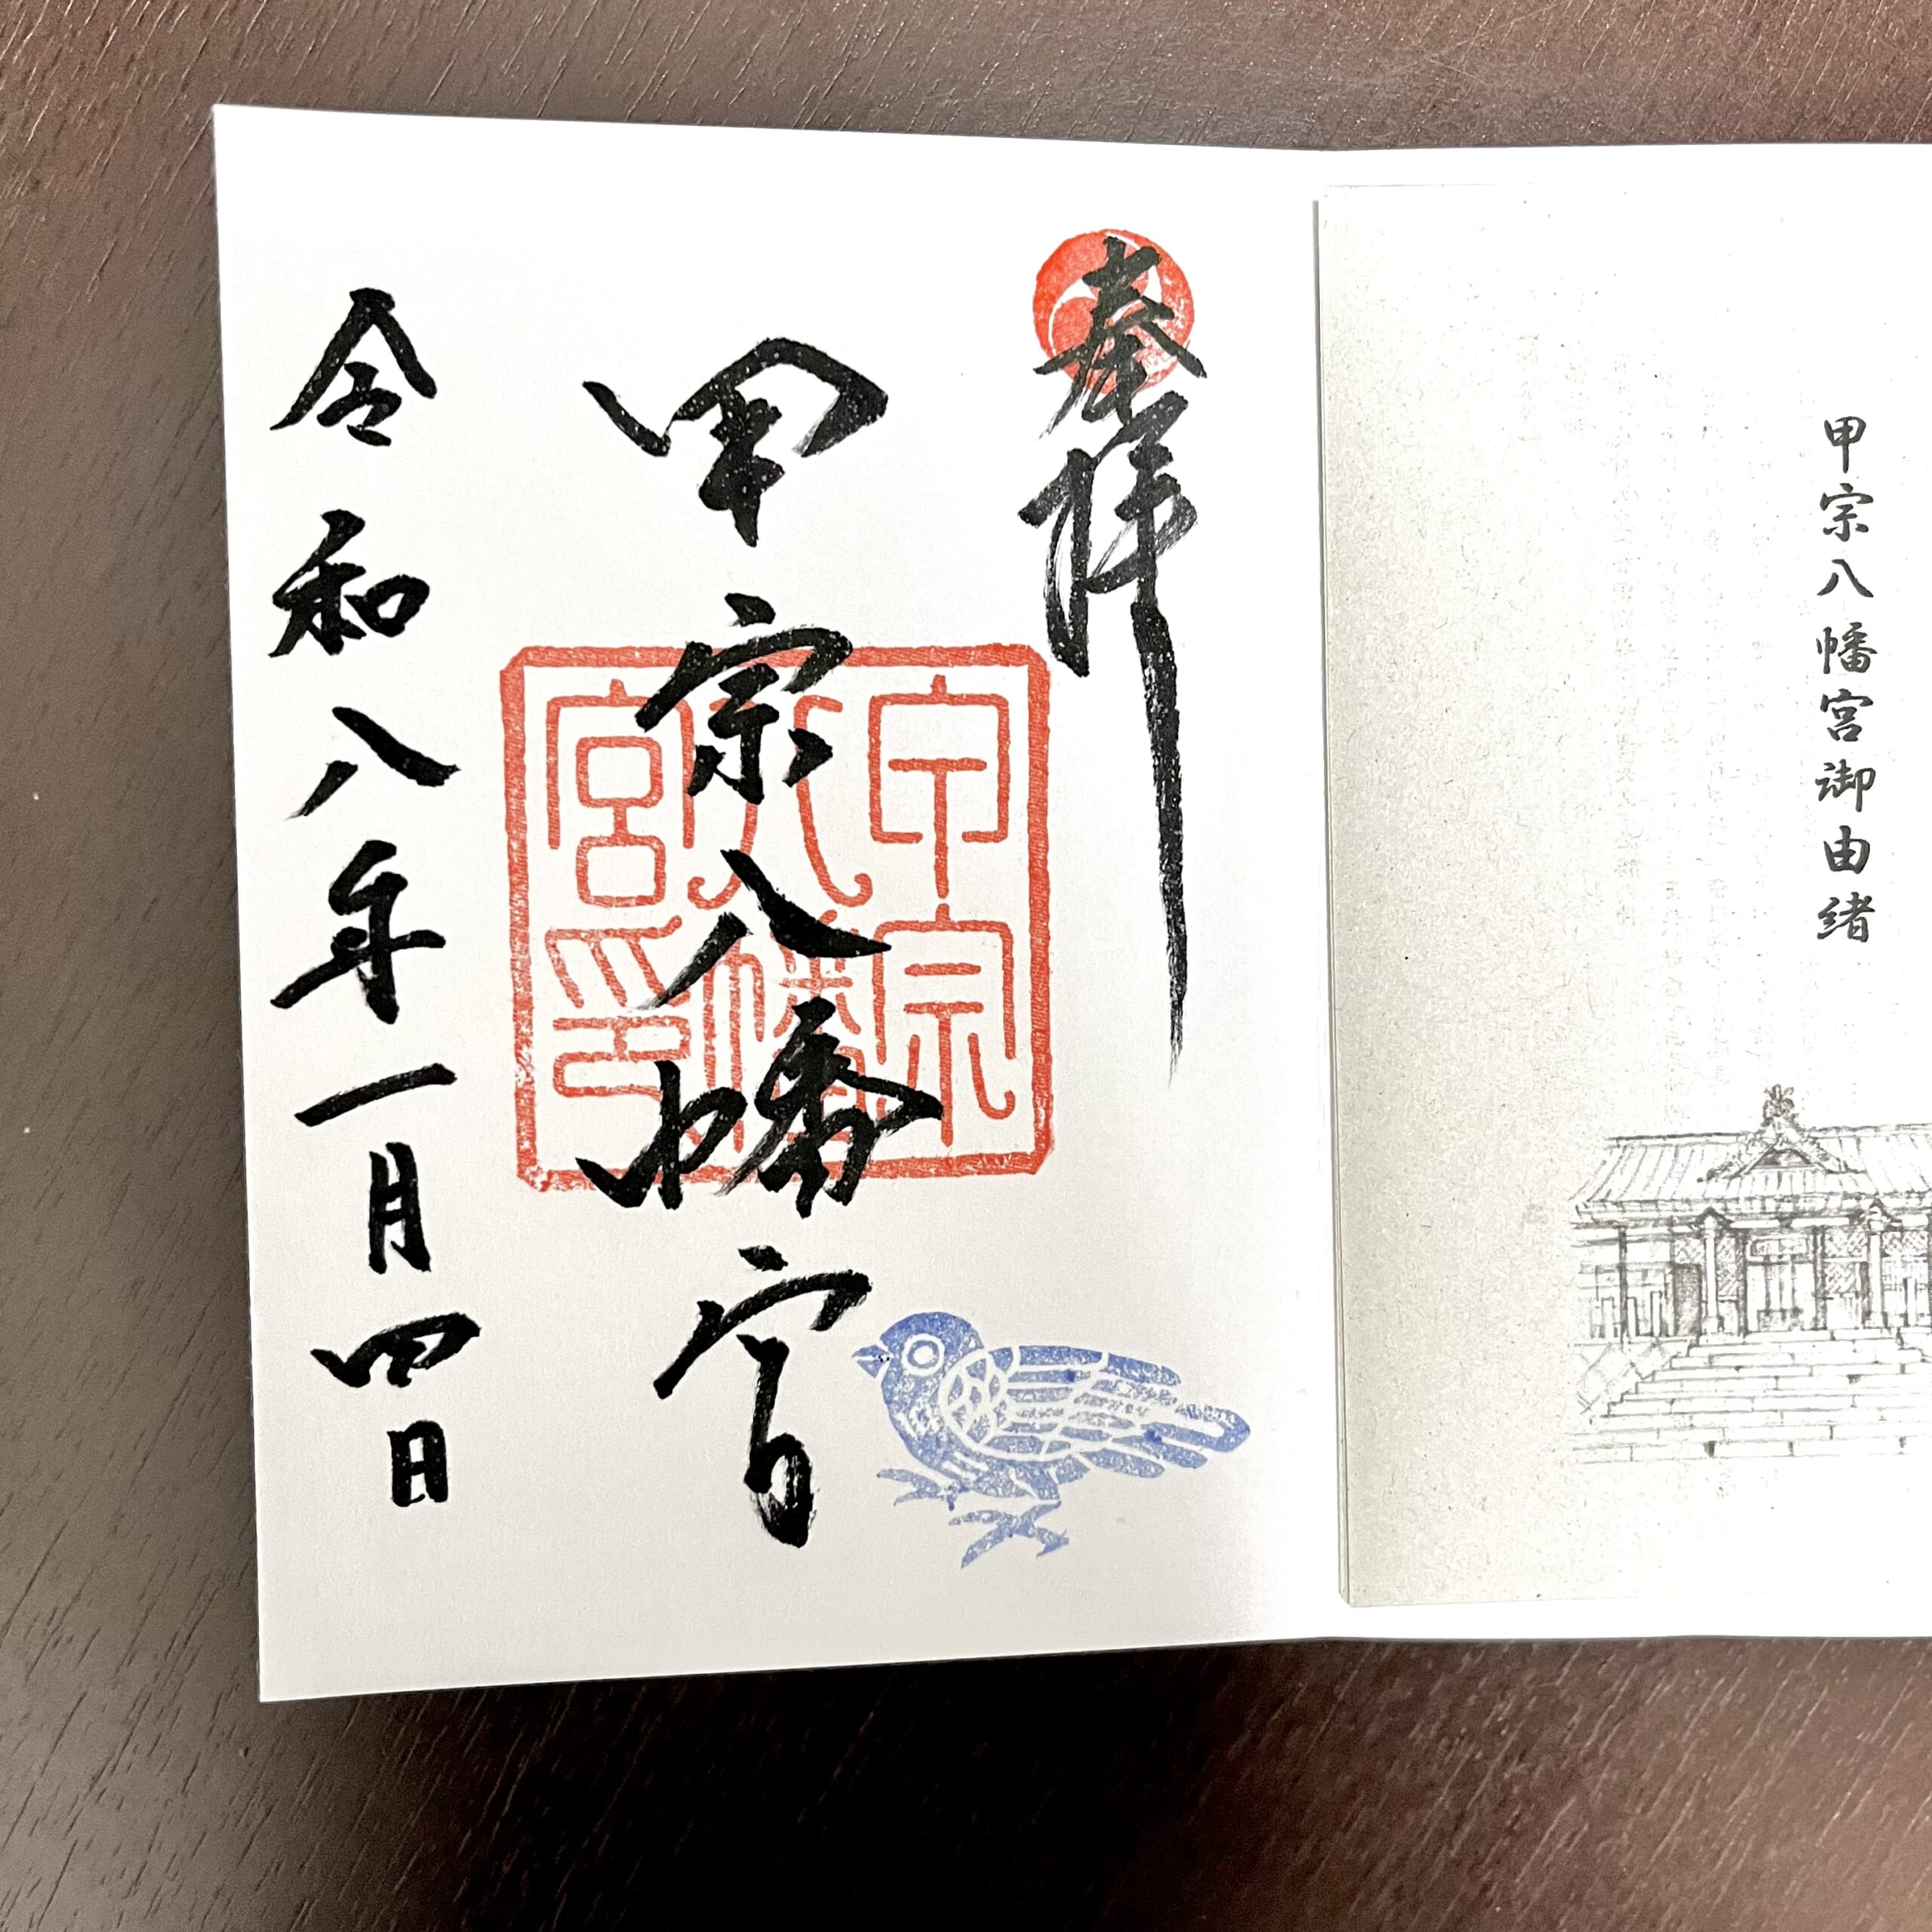 甲宗八幡宮御由緒
奉拝
甲宗八幡宮
令和八年一月四日
甲宗
八幡
宮印